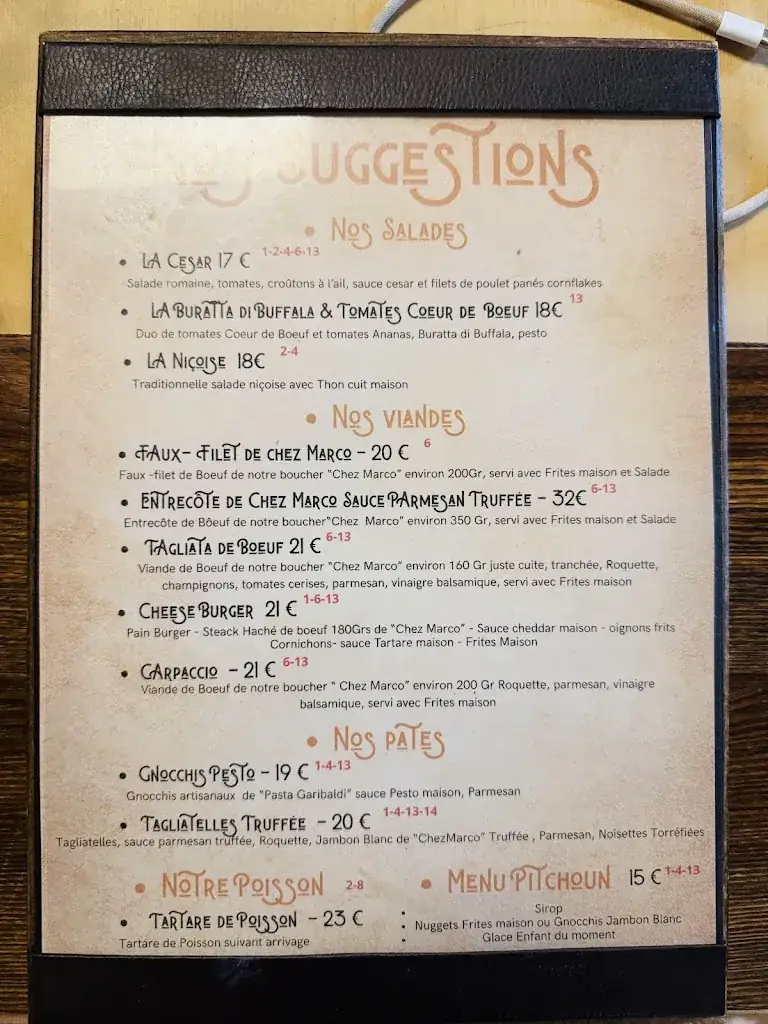 NOS SUGGESTIONS
• NOS SALADES
• LA CESAR 17 € 1-2-4-6-13
Salade romaine, tomates, croûtons à l'ail, sauce cesar et filets de poulet panés cornflakes
• LA BURATTA DI BUFFALA & TOMATES COEUR DE BOEUF 18€ 13
Duo de tomates Coeur de Boeuf et tomates Ananas, Buratta di Buffala, pesto
• LA NIÇOISE 18€ 2-4
Traditionnelle salade niçoise avec Thon cuit maison
• NOS VIANDES
• FAUX- FILET DE CHEZ MARCO - 20 € 6
Faux -filet de Boeuf de notre boucher "Chez Marco" environ 200Gr, servi avec Frites maison et Salade
• ENTRECÔTE DE CHEZ MARCO SAUCE PARMESAN TRUFFÉE - 32€ 6-13
Entrecôte de Bôeuf de notre boucher"Chez Marco" environ 350 Gr, servi avec Frites maison et Salade
• TAGLIATA DE BOEUF 21 € 6-13
Viande de Boeuf de notre boucher "Chez Marco" environ 160 Gr juste cuite, tranchée, Roquette,
champignons, tomates cerises, parmesan, vinaigre balsamique, servi avec Frites maison
• CHEESE BURGER 21 € 1-6-13
Pain Burger - Steack Haché de boeuf 180Grs de "Chez Marco" - Sauce cheddar maison - oignons frits
Cornichons- sauce Tartare maison - Frites Maison
• CARPACCIO - 21 € 6-13
Viande de Boeuf de notre boucher " Chez Marco" environ 200 Gr Roquette, parmesan, vinaigre
balsamique, servi avec Frites maison
• NOS PATES
• GNOCCHIS PESTO - 19 € 1-4-13
Gnocchis artisanaux de "Pasta Garibaldi" sauce Pesto maison, Parmesan
• TAGLIATELLES TRUFFÉE - 20 € 1-4-13-14
Tagliatelles, sauce parmesan truffée, Roquette, Jambon Blanc de "ChezMarco" Truffée , Parmesan, Noisettes Torréfiées
• NOTRE POISSON 2-8
• TARTARE DE POISSON - 23 €
Tartare de Poisson suivant arrivage
• MENU PITCHOUN 15 € 1-4-13
• Sirop
• Nuggets Frites maison ou Gnocchis Jambon Blanc
• Glace Enfant du moment